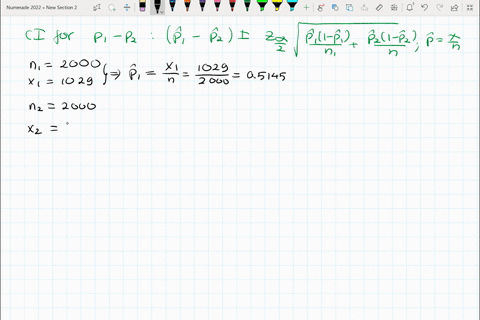 Numerade 2022 » New Section 2
CI for p₁ - p₂ : (p̂₁ - p̂₂) ± z_{α/2} √(p̂₁(1-p̂₁)/n₁ + p̂₂(1-p̂₂)/n) ; p̂ = x/n
n₁ = 2000
x₁ = 1029 } ⇒ p̂₁ = x₁/n = 1029/2000 = 0.5145
n₂ = 2000
x₂ =